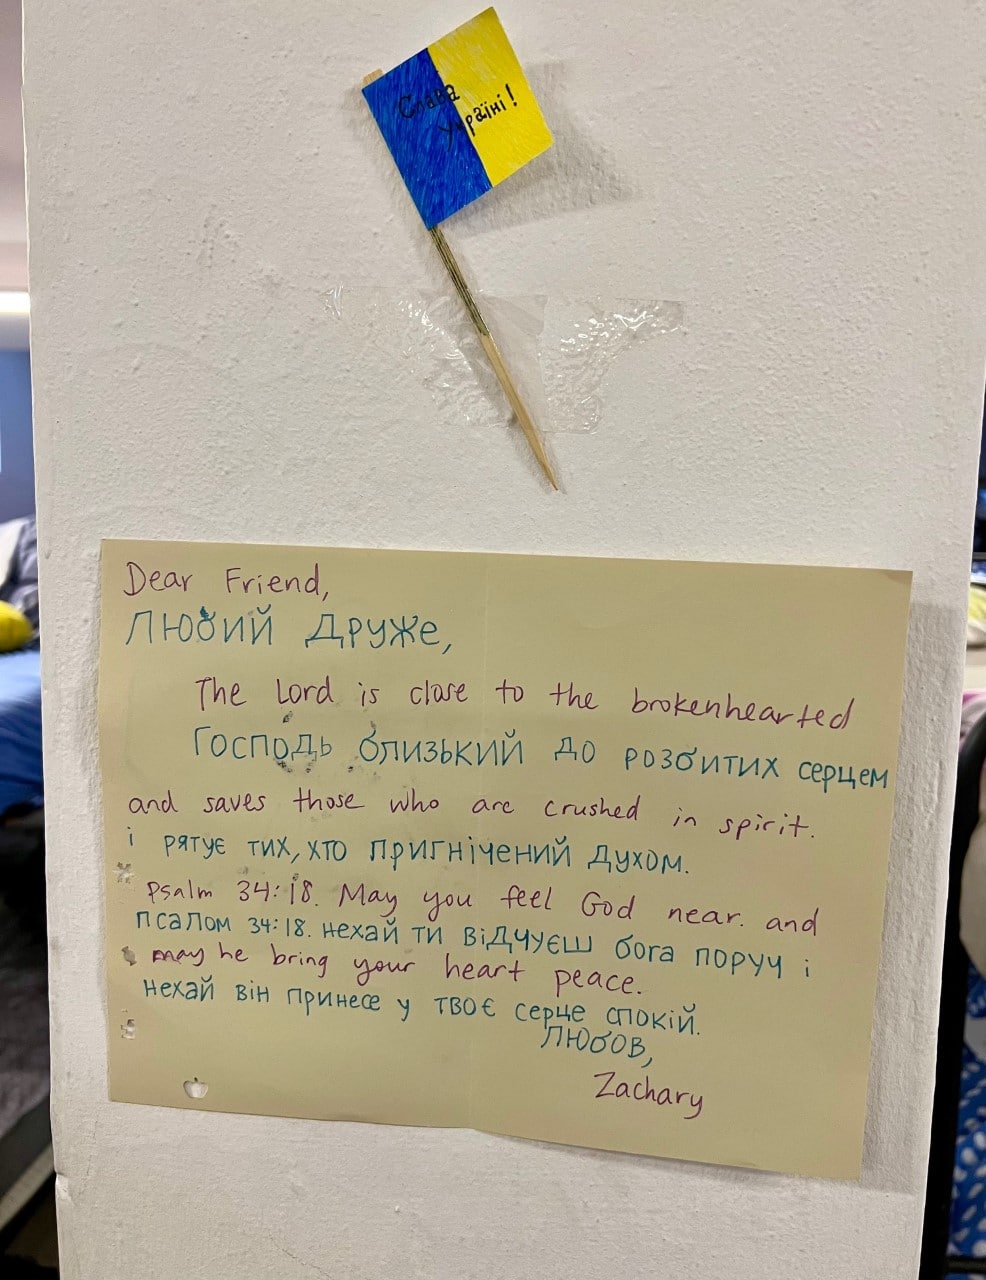 Слава
Україні!
Dear Friend,
Любий друже,
The Lord is close to the brokenhearted
Господь близький до розбитих серцем
and saves those who are crushed in spirit.
і рятує тих, хто пригнічений духом.
Psalm 34:18. May you feel God near. and
псалом 34:18. нехай ти відчуєш бога поруч і
may he bring your heart peace.
нехай він принесе у твоє серце спокій.
Любов,
Zachary